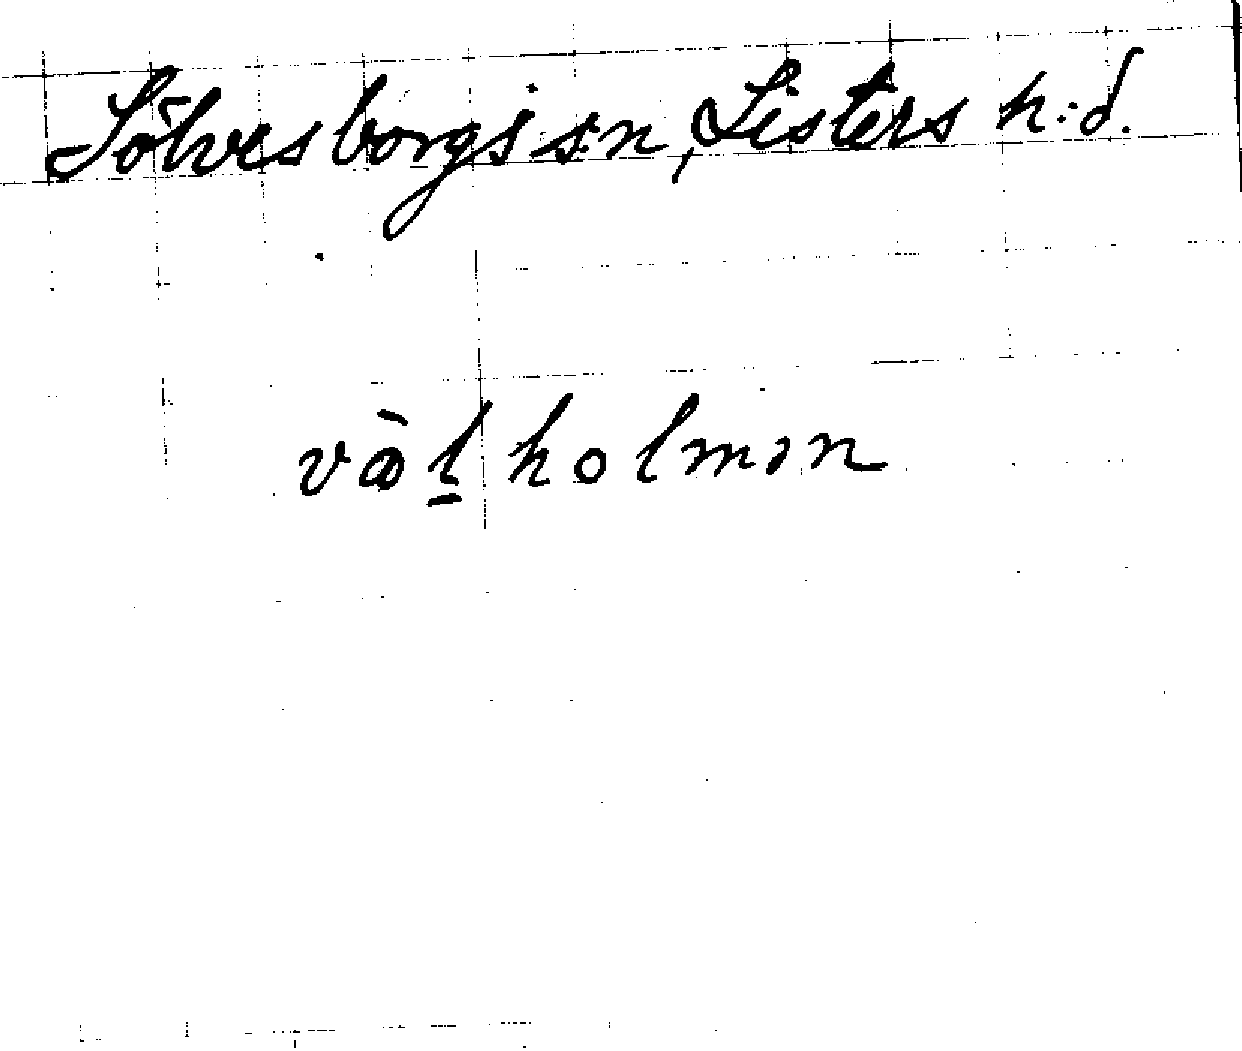 Sölvesborgs s:n, Listers h:d.
vàl̲holmən